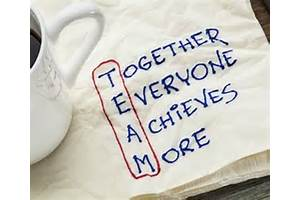 TOGETHER
EVERYONE
ACHIEVES
MORE